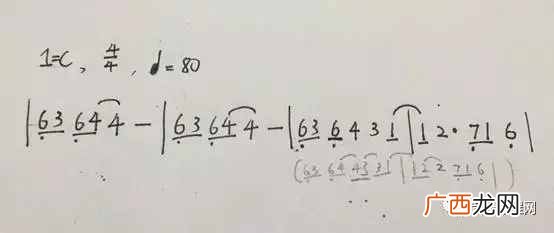 1=C, 4/4, ♩=80
|63 644 - |63 644 - |63 6431|12·716|
(63 6443 31|122716|)
广西龙网